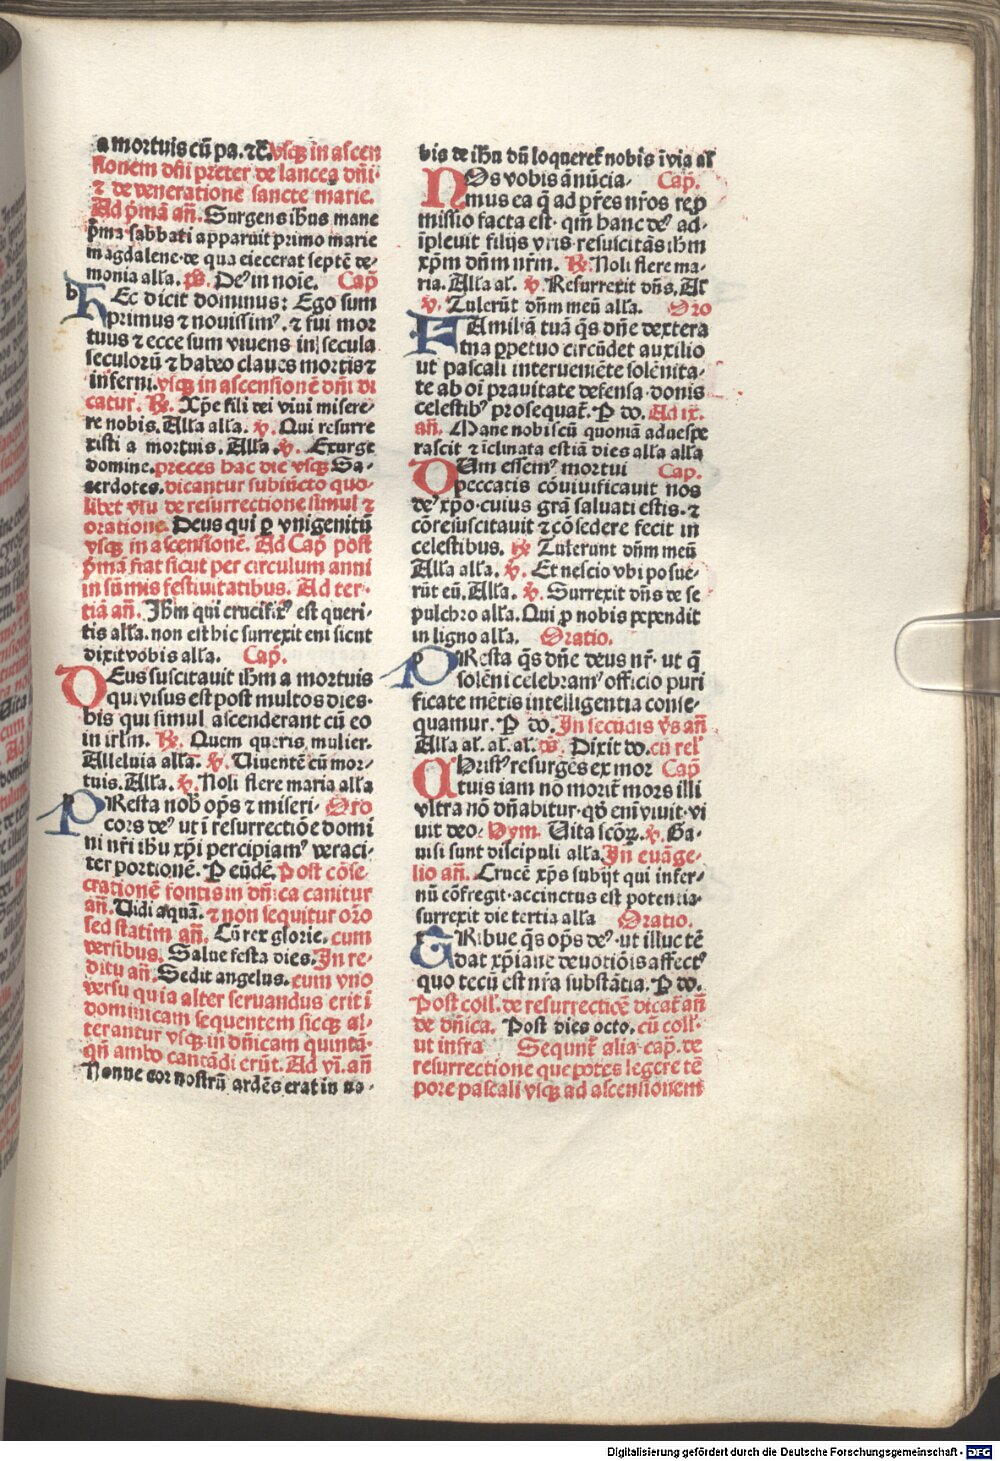 a mortuis cū pa. ⁊c̄. vsq̄ in ascen
sionem dn̄i preter de lancea dn̄i·
⁊ de veneratione sancte marie.
Ad p̄mā an̄. Surgens ihūs mane
p̄ma sabbati apparuit primo marie
magdalene·de qua eiecerat septē de⸗
monia alľa. ps̄. Deꝰ in noīe. Cap̄
HEc dicit dominus: Ego sum
primus ⁊ nouissimꝰ. ⁊ fui mor
tuus ⁊ ecce sum viuens in secula
seculorū ⁊ habeo claues mortis ⁊
inferni. vsq̄ in ascensionē dn̄i di
catur. ℟. Xp̄e fili dei viui misere⸗
re nobis. Alľa alľa. ℣. Qui resurre
xisti a mortuis. Alľa. ℣. Exurge
domine. preces hac die vsq̄ Sa⸗
cerdotes. dicantur subiūcto quo⸗
libet vr̄u de resurrectione simul ⁊
oratione. Deus qui ꝑ vnigenitū
vsq̄ in ascensionē. Ad Cap̄ post
p̄mā fiat sicut per circulum anni
in sūmis festiuitatibus. Ad ter⸗
tiā an̄. Ihm̄ qui crucifixꝰ est queri⸗
tis alľa. non est hic surrexit eni sicut
dixit vobis alľa. Cap̄.
DEus suscitauit ihm̄ a mortuis
qui visus est post multos dies·
his qui simul ascenderant cū eo
in irľm. ℟. Quem queris mulier.
Alleluia alľa. ℣. Viuentē cū mor⸗
tuis. Alľa. ℣. Noli flere maria alľa
PResta nob̄ op̄s ⁊ miseri· Oro
cors deꝰ ut ī resurrectiōe domi
ni nr̄i ihu xp̄i percipiamꝰ veraci⸗
ter portionē. P eūdē. Post cōse⸗
crationē fontis in dn̄ica canitur
an̄. Vidi aquā. ⁊ non sequitur oro
sed statim an̄. Cū rex glorie. cum
versibus. Salue festa dies. In re⸗
ditu an̄. Sedit angelus. cum vno
versu quia alter seruandus erit ī
dominicam sequentem sicq̄ al⸗
terantur vsq̄ in dn̄icam quintā·
qn̄ ambo cantādi erūt. Ad vi. an̄
Nonne cor nostrū ardēs erat in no⸗
bis de ihu dū loqueret̄ nobis ī via al
NOs vobis ānūcia⸗ Cap̄.
mus ea q̄ ad pr̄es nr̄os rep̄
missio facta est· qm̄ hanc deꝰ ad⸗
īpleuit filijs vr̄is·resuscitās ihm̄
xp̄m dn̄m nr̄m. ℟. Noli flere ma⸗
ria. Alľa al. ℣. Resurrexit dn̄s. Al
℣. Tulerūt dn̄m meū alľa. Oro
FAmiliā tuā q̄s dn̄e dextera
tua ꝑpetuo circūdet auxilio
ut pascali interueniēte solēnita⸗
te ab oī prauitate defensa·donis
celestibꝰ prosequat̄. P do. Ad ix.
an̄. Mane nobiscū quoniā aduesꝑe
rascit ⁊ īclinata est iā dies alľa alľa
DUm essemꝰ mortui Cap.
peccatis cōuiuificauit nos
deꝰ xp̄o·cuius grā saluati estis·⁊
cōresuscitauit ⁊ cōsedere fecit in
celestibus. ℟ Tulerunt dn̄m meū
Alľa alľa. ℣. Et nescio vbi posue⸗
rūt eū. Alľa. ℣. Surrexit dn̄s de se
pulchro alľa. Qui ꝓ nobis pependit
in ligno alľa. Oratio.
PResta q̄s dn̄e deus nr̄· ut q̄
solēni celebramꝰ officio puri
ficate mētis intelligentia conse⸗
quamur. P do. In secūdis vs̄ an̄
Alľa al. al. al. ps̄. Dixit do. cū rel
CHristꝰ resurgēs ex mor Cap̄
tuis iam nō morit̄ mors illi
vltra nō dn̄abitur·qd̄ eni viuit·vi
uit deo. Hym. Vita scōꝝ. ℣. Ga⸗
uisi sunt discipuli alľa. In euāge⸗
lio an̄. Crucē xp̄s subijt qui infer⸗
nū cōfregit·accinctus est potentia·
surrexit die tertia alľa Oratio.
TRibue q̄s op̄s deꝰ·ut illuc tē
dat xp̄iane deuotiōis affectꝰ
quo tecū est nr̄a substātia. P do.
Post coll. de resurrectiōe dicat̄ an̄
de dn̄ica. Post dies octo. cū coll·
ut infra Sequnt̄ alia cap̄. de
resurrectione que potes legere tē
pore pascali vsq̄ ad ascensionem
Digitalisierung gefördert durch die Deutsche Forschungsgemeinschaft - DFG